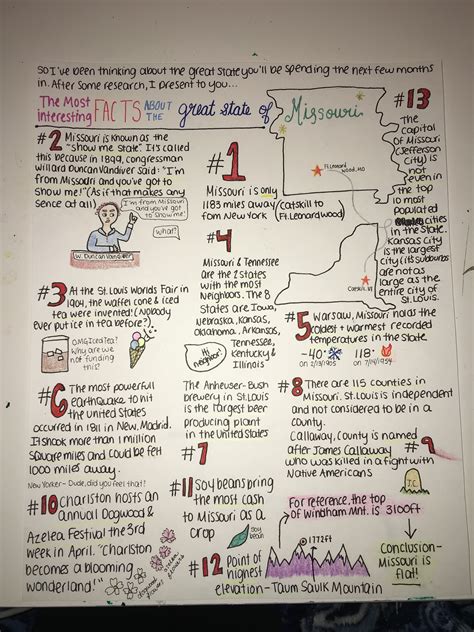 So I've been thinking about the great state you'll be spending the next few months
in. After some research, I present to you...
The Most
interesting
FACTS
ABOUT
THE
great state of
Missouri
#2 Missouri is known as the
"show me state." It's called
this because in 1899, congressman
Willard Duncan Vandiver said: "I'm
from Missouri and you've got to
Show me!" (As if that makes any
sense at all)
I'm from Missouri
and you've got
to show me!
What?
W. Duncan Vandiver
#1
Missouri is only
1183 miles away (Catskill to
from New York Ft. Leonard Wood)
Ft. Leonard
Wood, MO
Catskill, NY
#13
The
capital
of Missouri
(Jefferson
City) is
not
even in
the top
10 most
populated
cities
in the state.
Kansas City
is the largest
city (its suburbs
are not as
large as the
entire city of
St. Louis.
#3 At the St. Louis Worlds Fair in
1904, the waffle cone & iced
tea were invented! (Nobody
ever put ice in tea before?)
OMG Iced Tea!
Why are we
not funding
this?
#4
Missouri & Tennessee
are the 2 states
with the most
Neighbors. The 8
States are Iowa,
Nebraska, Kansas,
Oklahoma, Arkansas,
Tennessee,
Kentucky &
Illinois
Hi
neighbor!
#5 Warsaw, Missouri holds the
coldest + warmest recorded
temperatures in the state
-40° 118°
on 2/13/1905 on 7/14/1954
#6 The most powerful
earthquake to hit
the United States
occurred in 1811 in New Madrid.
It shook more than 1 million
square miles and could be felt
1000 miles away.
New Yorker - Dude, did you feel that!
The Anheuser-Bush
brewery in St. Louis
is the largest beer
producing plant
in the United States
#7
#8 There are 115 counties in
Missouri. St. Louis is independent
and not considered to be in a
county.
Callaway, County is named #9
after James Callaway
who was killed in a fight with
Native Americans
J.C.
#10 Charlston hosts an
annual Dogwood &
Azelea Festival the 3rd
week in April. "Charlston
becomes a blooming
wonderland!"
#11 Soybeans bring
the most cash
to Missouri as a
crop
Soybean
#12 Point of
highest
elevation - Taum Sauk Mountain
1772ft
For reference, the top
of Windham Mnt. is 3100ft
Conclusion-
Missouri is
flat!